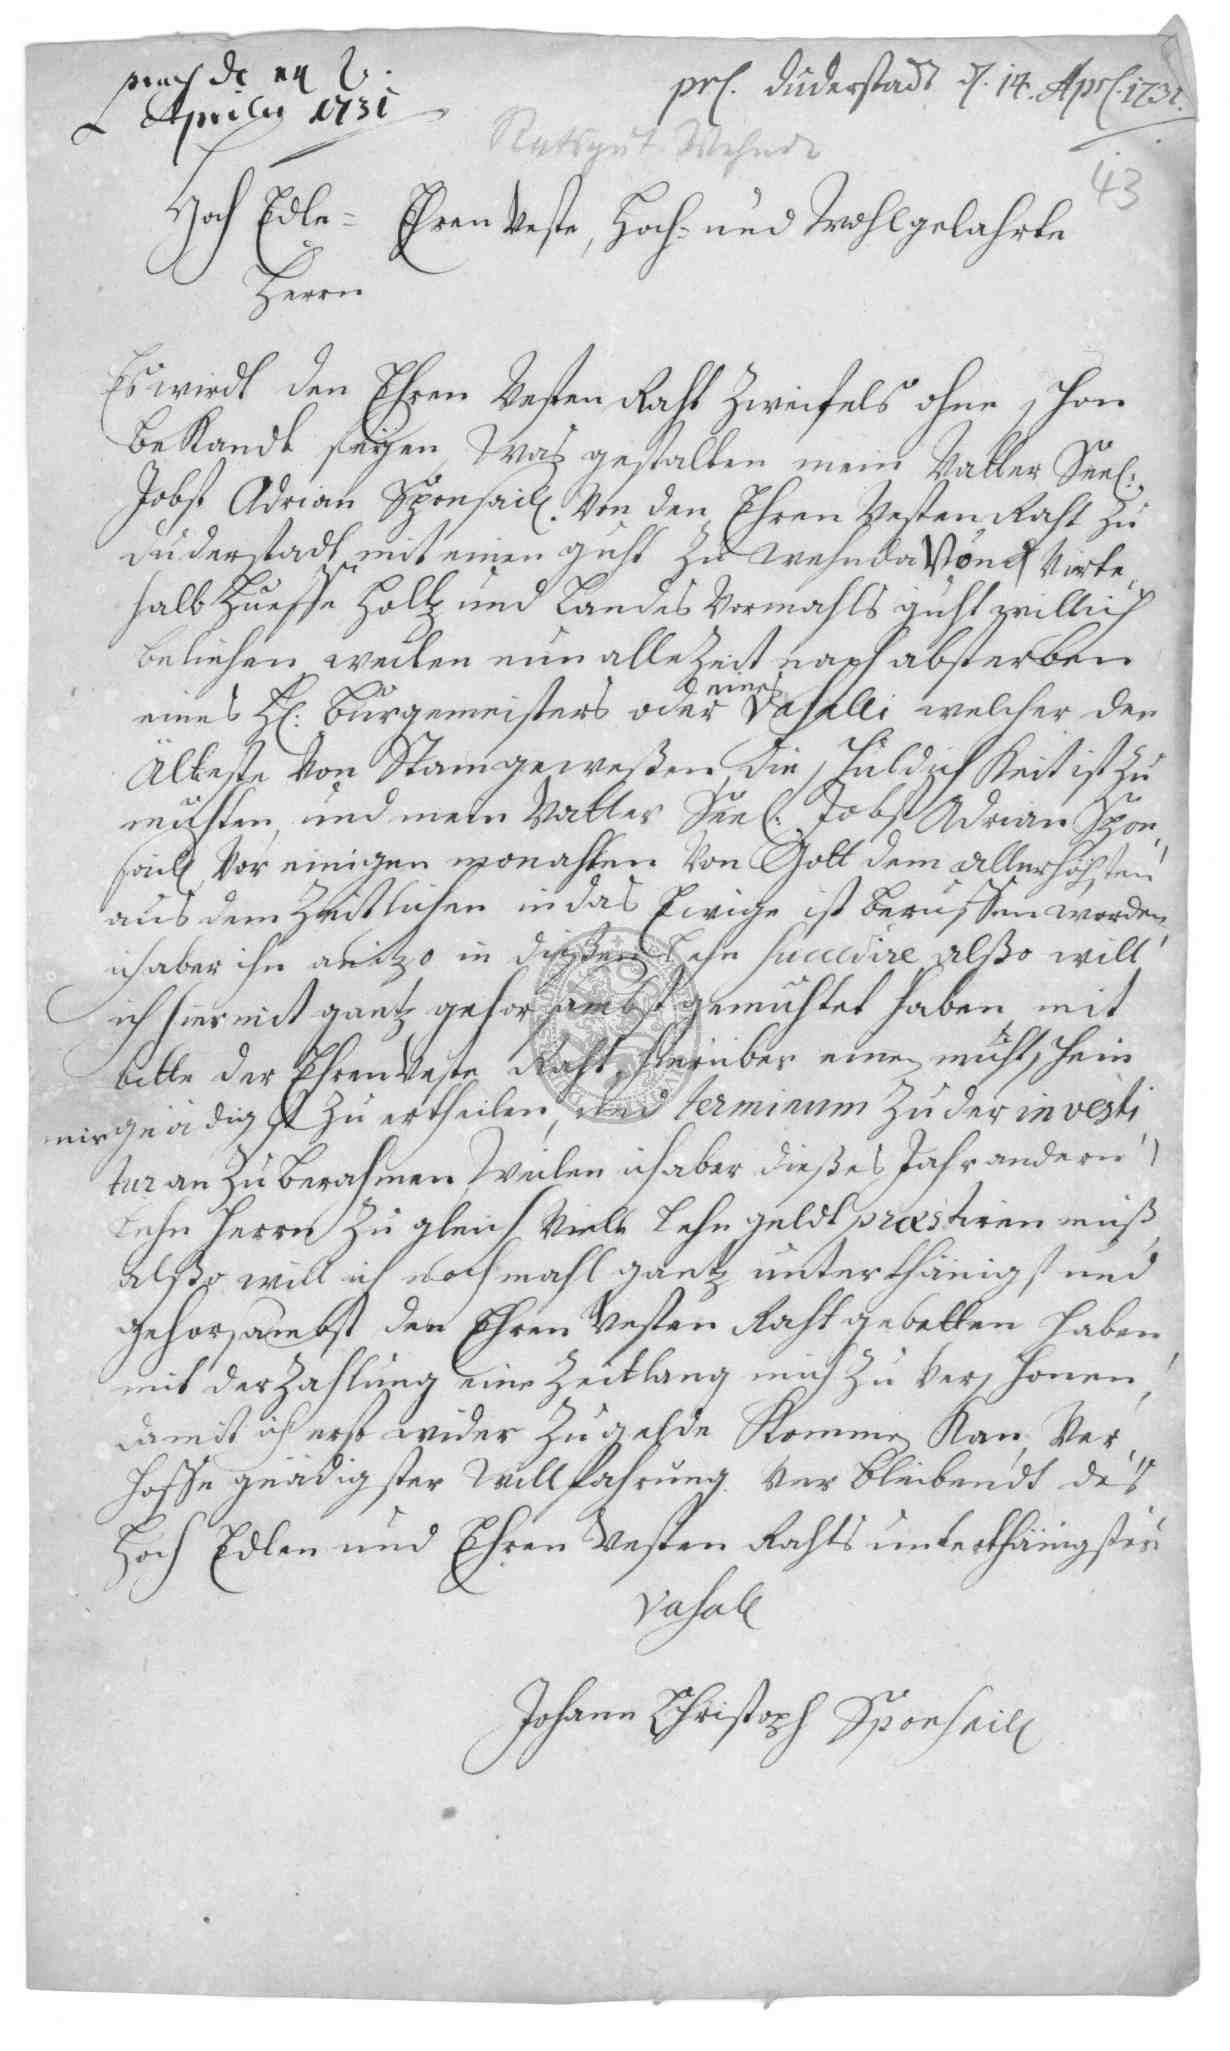 Aprilis 1731
prs. Duderstadt d. 14. Apr. 1731.
Ratsgut Wehnde
43
Hoch Edle= Ehren Veste, Hoch- und Wohlgelahrte
Herrn
Es wirdt den Ehren Vesten Raht Zweifels ohne schon
bekandt seyen, was gestalten mein Vatter Seel:
Jobst Adrian Sponsail. Von den Ehren Vesten Raht zu
duderstadt mit einen guht zu wehnda Virte,
halb Hueffe Holtz und Landes Vormahls guhtwillich
beliehen, weilen nun alle Zeit nach absterben
eines H: Burgemeisters oder eines Vasalli welcher der
Älteste Von Stam geweßen, die schuldichkeit ist zu
muhten, und mein Vatter Seel. Jobst Adrian Spon,
sail Vor einigen monahten Von Gott dem allerhöchsten
aus dem Zeitlichen in das Ewige ist beruffen worden,
ich aber ihn anitzo in dießen Lehn succedire alßo will
ich hiermit gantz gehorsambst gemuhtet haben, mit
bitte der Ehren Veste Raht hierüber einen muhtschein
mir gnädigst zu ertheilen, und terminum zu der investi
tur an zu berahmen, Weilen ich aber dießes Jahr andern
Lehn Herrn zu gleich Viele Lehn geldt præstiren muß,
alßo will ich nochmahl gantz unterthänigst und
gehorsambst den Ehren Vesten Raht gebetten haben
mit der Zahlung eine Zeitlang mich zu verschonen,
damit ich erst wider zu gelde Kommen Kan, Ver,
hoffe gnädigster willfahrung Ver bleibendt des
Hoch Edlen und Ehren Vesten Rahts unterthänigster
Vasall
Johann Christoph Sponsail